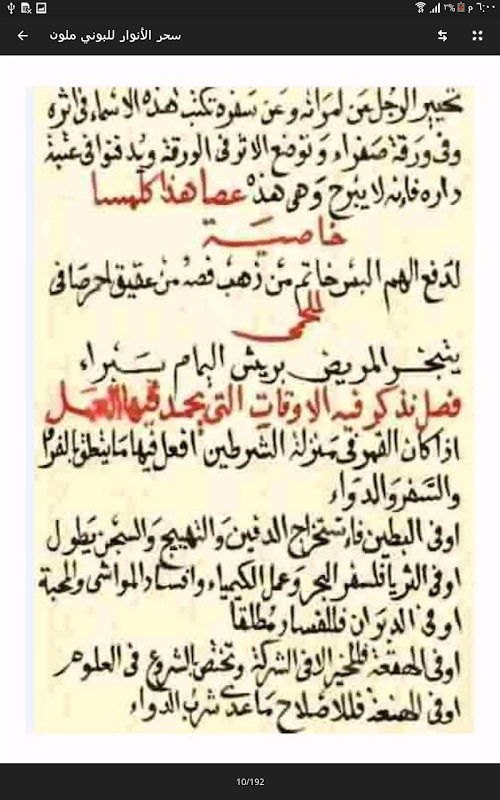 م ٦:٠٠
٣%
سحر الأنوار للبوني ملون
تحيير الرجل عن امراته وعن سفره تكتب هذه الاسماء في اثره
وفي ورقة صفراء وتوضع الاثر في الورقة ويدفنوا في عتبة
داره فانه لا يبرح وهي هذه عصا هذا كلهسا
خاصية
لدفع الهم البس خاتم من ذهب فصه من عقيق احمر صافي
للحمى
يتبخر المريض بريش اليمام يبراء
فصل نذكر فيه الاوقات التي يحمد فيها العمل
اذا كان القمر في منزلة الشرطين افعل فيها ما يتعلق بالفراق
والسفر والدواء
او في البطين فاستخراج الدفين والتهييج والسجن يطول
او في الثريا فلسفر البحر وعمل الكيمياء وافساد المواشي والمحبة
او في الدبران فللفساد مطلقا
او في الهقعة فللخير الا في الشركة وتختص بالشروع في العلوم
او في الهنعة فللاصلاح ما عدى شرب الدواء
10/192